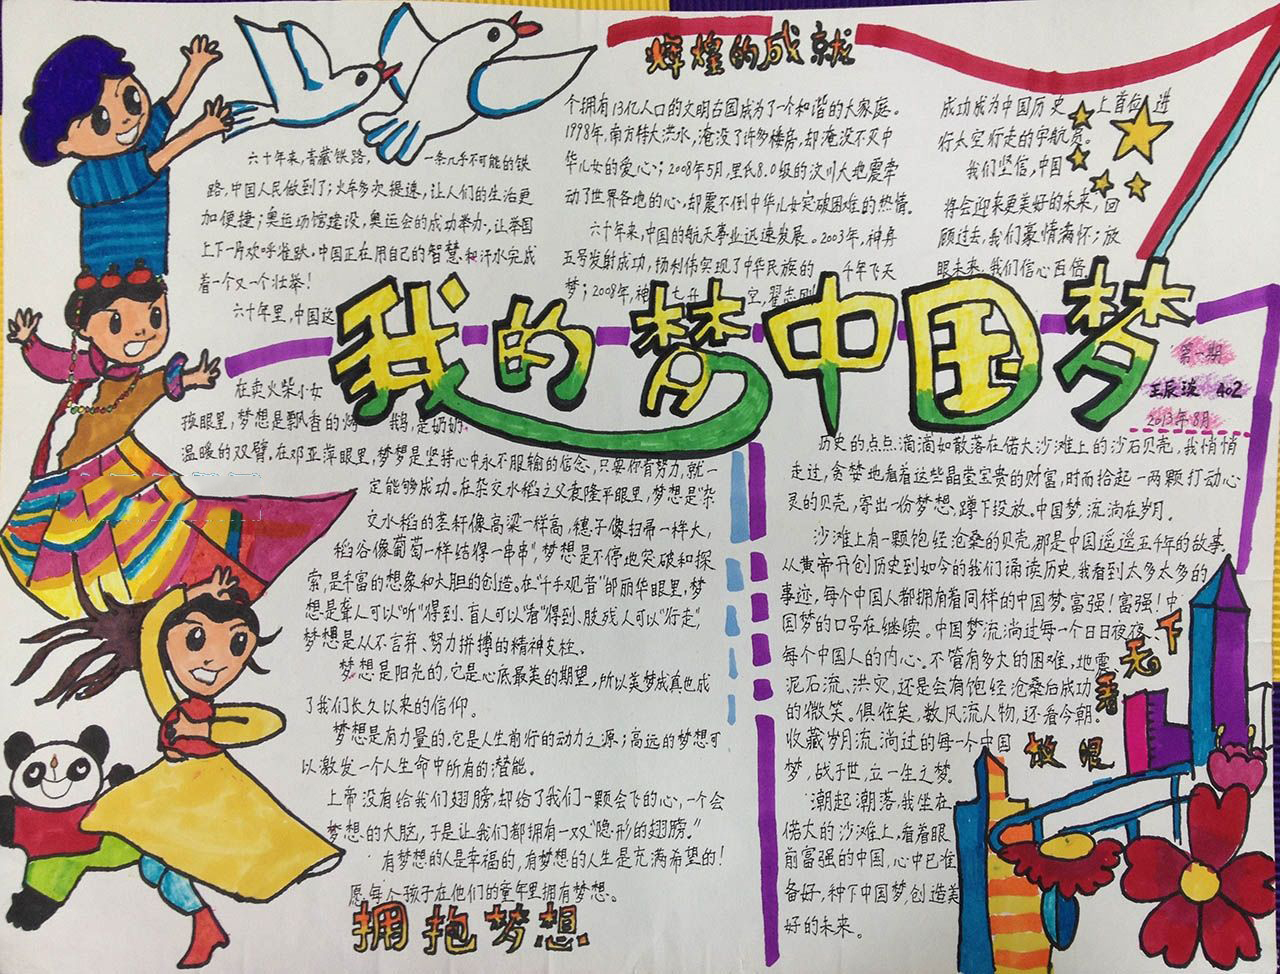 辉煌的成就
六十年来,青藏铁路, 一条几乎不可能的铁
路,中国人民做到了;火车多次提速,让人们的生活更
加便捷;奥运场馆建设,奥运会的成功举办,让举国
上下一片欢呼雀跃,中国正在用自己的智慧和汗水完成
着一个又一个壮举!
六十年里,中国这
个拥有13亿人口的文明古国成为了一个和谐的大家庭。
1998年,南方特大洪水,淹没了许多楼房,却淹没不灭中
华儿女的爱心;2008年5月,里氏8.0级的汶川大地震牵
动了世界各地的心,却震不倒中华儿女突破困难的热情。
六十年来,中国的航天事业迅速发展。2003年,神舟
五号发射成功,杨利伟实现了中华民族的 千年飞天
梦;2008年,神 七升 空,翟志刚
成功成为中国历史 上首位 进
行太空行走的宇航员。
我们坚信,中国
将会迎来更美好的未来,回
顾过去,我们豪情满怀;放
眼未来,我们信心百倍
我的梦中国梦
第一期
402
2013年8月
在卖火柴小女
孩眼里,梦想是飘香的烤 鹅,是奶奶
温暖的双臂。在邓亚萍眼里,梦想是坚持心中永不服输的信念,只要你肯努力,就一
定能够成功。在杂交水稻之父袁隆平眼里,梦想是“杂
交水稻的茎秆像高粱一样高,穗子像扫帚一样大,
稻谷像葡萄一样结得一串串”,梦想是不停地突破和探
索,是丰富的想象和大胆的创造。在“千手观音”邰丽华眼里,梦
想是聋人可以“听”得到、盲人可以“看”得到、肢残人可以“行走”,
梦想是从不言弃、努力拼搏的精神支柱。
梦想是阳光的,它是心底最美的期望,所以美梦成真也成
了我们长久以来的信仰。
梦想是有力量的,它是人生前行的动力之源;高远的梦想可
以激发一个人生命中所有的潜能。
上帝没有给我们翅膀,却给了我们一颗会飞的心,一个会
梦想的大脑,于是让我们都拥有一双“隐形的翅膀。”
有梦想的人是幸福的,有梦想的人生是充满希望的!
愿每个孩子在他们的童年里拥有梦想。
拥抱梦想
历史的点点滴滴如散落在偌大沙滩上的沙石贝壳,我悄悄
走过,贪婪地看着这些晶莹宝贵的财富,时而拾起一两颗打动心
灵的贝壳,寄出一份梦想,蹲下投放。中国梦,流淌在岁月。
沙滩上有一颗饱经沧桑的贝壳,那是中国遥遥五千年的故事,
从黄帝开创历史到如今的我们诵读历史,我看到太多太多的
事迹,每个中国人都拥有着同样的中国梦。富强!富强!中
国梦的口号在继续。中国梦流淌过每一个日日夜夜、
每个中国人的内心。不管有多大的困难,地震、
泥石流、洪灾,还是会有饱经沧桑后成功
的微笑。俱往矣,数风流人物,还看今朝。
收藏岁月流淌过的每一个中国
梦,战于世,立一生之梦。
潮起潮落,我坐在
偌大的沙滩上,看着眼
前富强的中国,心中已准
备好,种下中国梦,创造美
好的未来。
放眼看天下